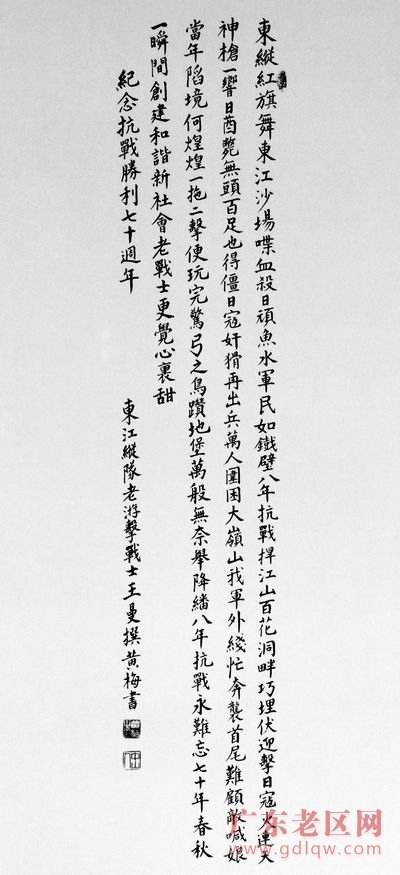 東縱紅旗舞東江沙場喋血殺日頑魚水軍民如鐵壁八年抗戰捍江山百花洞畔巧埋伏迎擊日寇火連天
神槍一響日酋斃無頭百足也得僵日寇奸猾再出兵萬人圍困大嶺山我軍外綫忙奔襲首尾難顧敵喊娘
當年陷境何煌煌一拖二擊便玩完驚弓之鳥鑽地堡萬般無奈舉降繙八年抗戰永難忘七十年春秋
一瞬間創建和諧新社會老戰士更覺心裏甜
紀念抗戰勝利七十週年
東江縱隊老游擊戰士王曼撰黄梅書
广东老区网
www.gdlqw.com